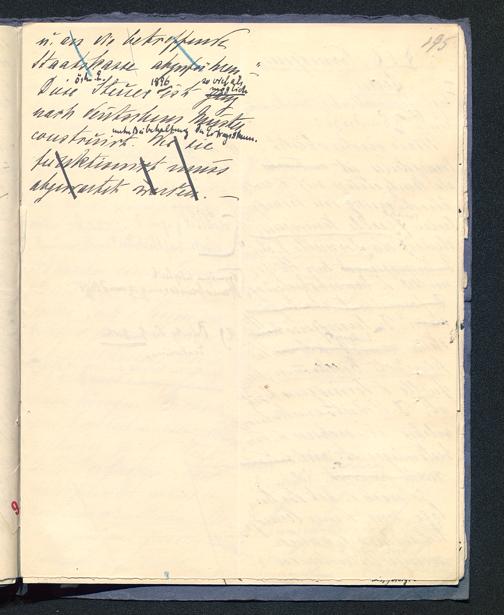 195
u. an die betreffende
Staatskasse abzuführen."
Diese Steuer ist 1896 so viel als möglich
nach deutschem Muster
construirt. unter Beibehaltung der
Wie sie
funktionirt muss
abgewartet werden. —
9